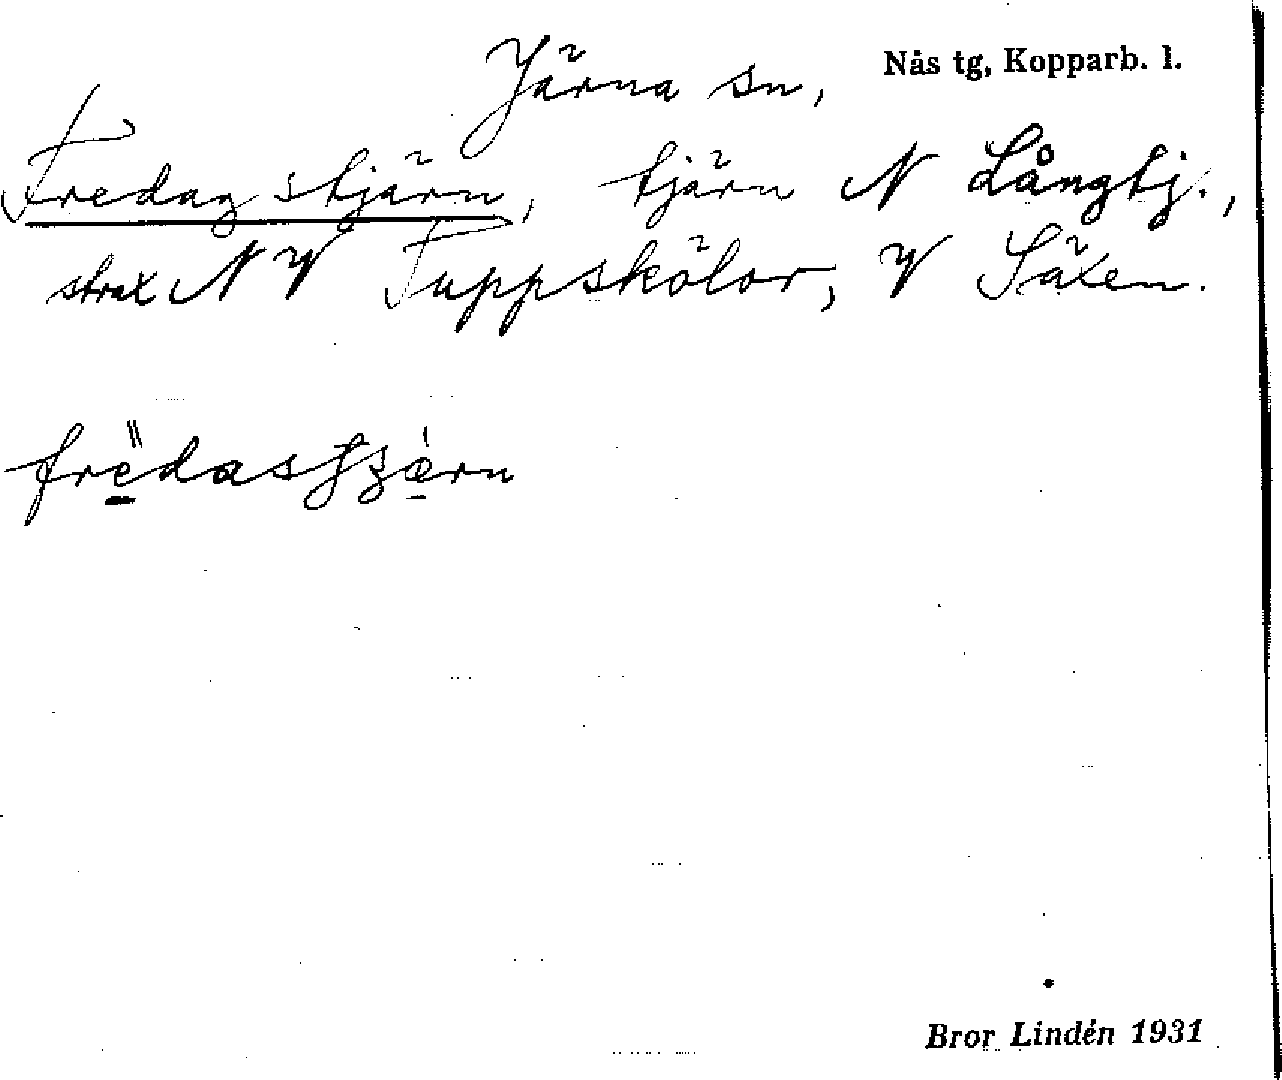 Järna sn, Nås tg, Kopparb. l.
Fredagstjärn, tjärn N Långtj.,
strax NV Tuppskölor, V Säxen.
Bror Lindén 1931